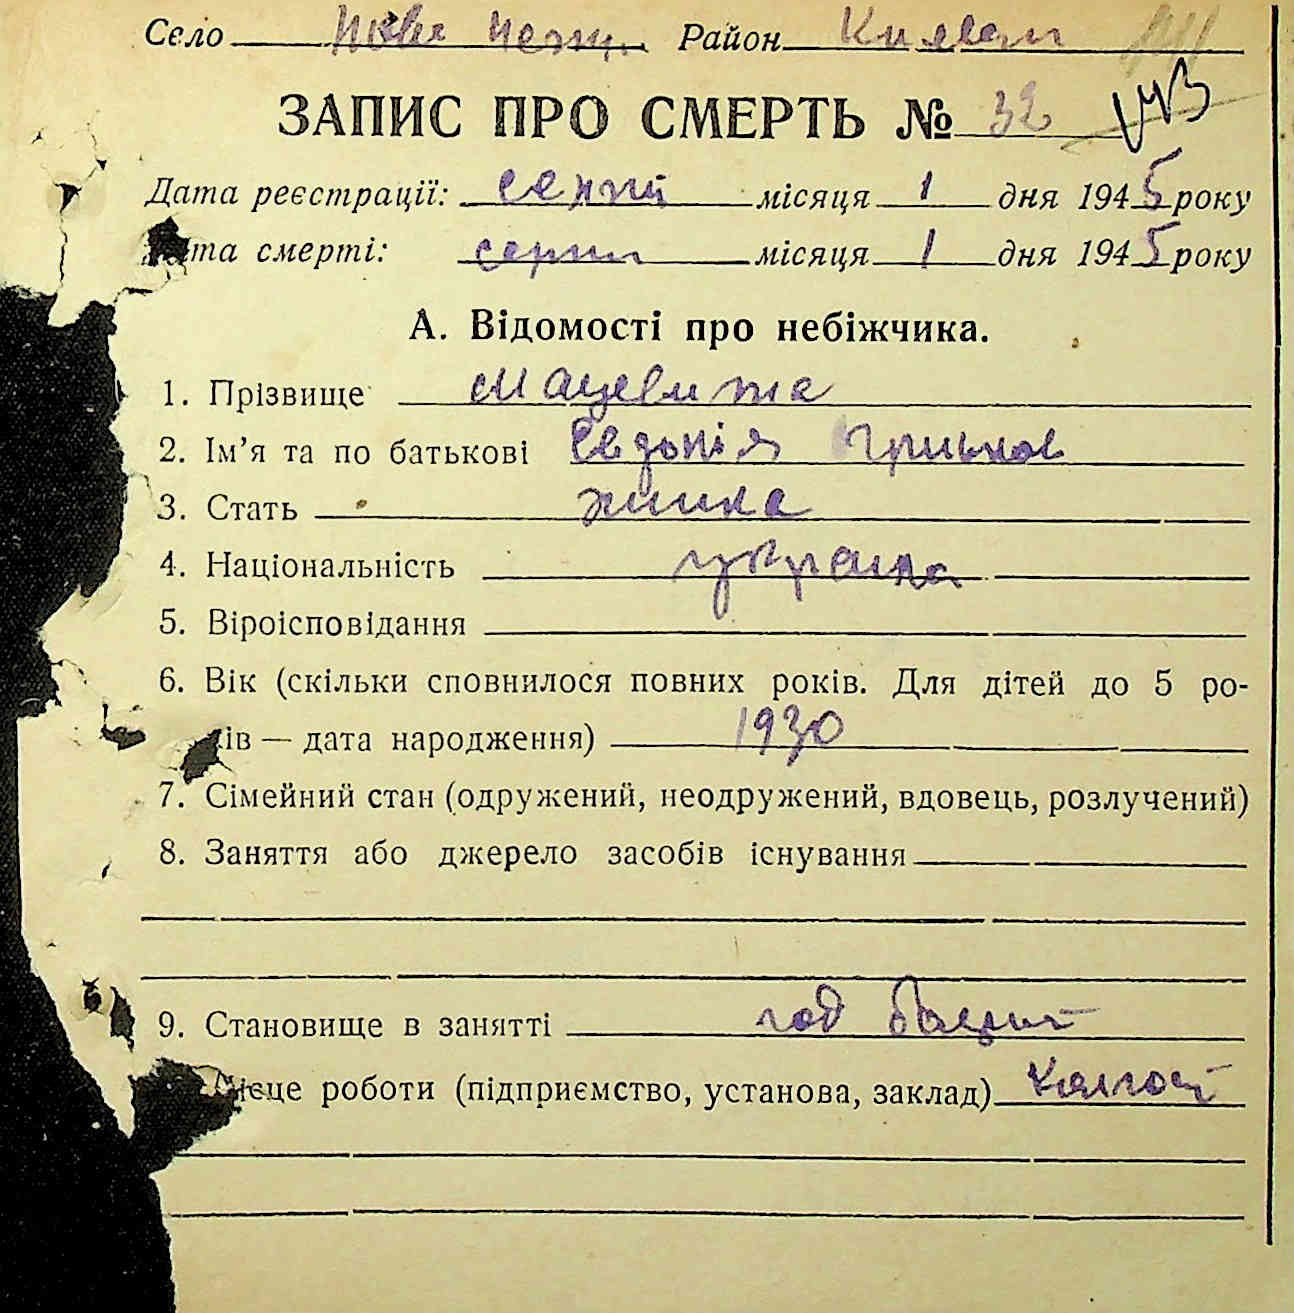 Село Нове Район
ЗАПИС ПРО СМЕРТЬ № 32
Дата реєстрації: серпня місяця 1 дня 1945 року
ата смерті: серпня місяця 1 дня 1945 року
А. Відомості про небіжчика.
1. Прізвище Мацевита
2. Ім'я та по батькові Евдокія
3. Стать жинка
4. Національність украинка
5. Віроісповідання
6. Вік (скільки сповнилося повних років. Для дітей до 5 ро-
ків — дата народження) 1930
7. Сімейний стан (одружений, неодружений, вдовець, розлучений)
8. Заняття або джерело засобів існування
9. Становище в занятті
ісце роботи (підприємство, установа, заклад) Колгосп